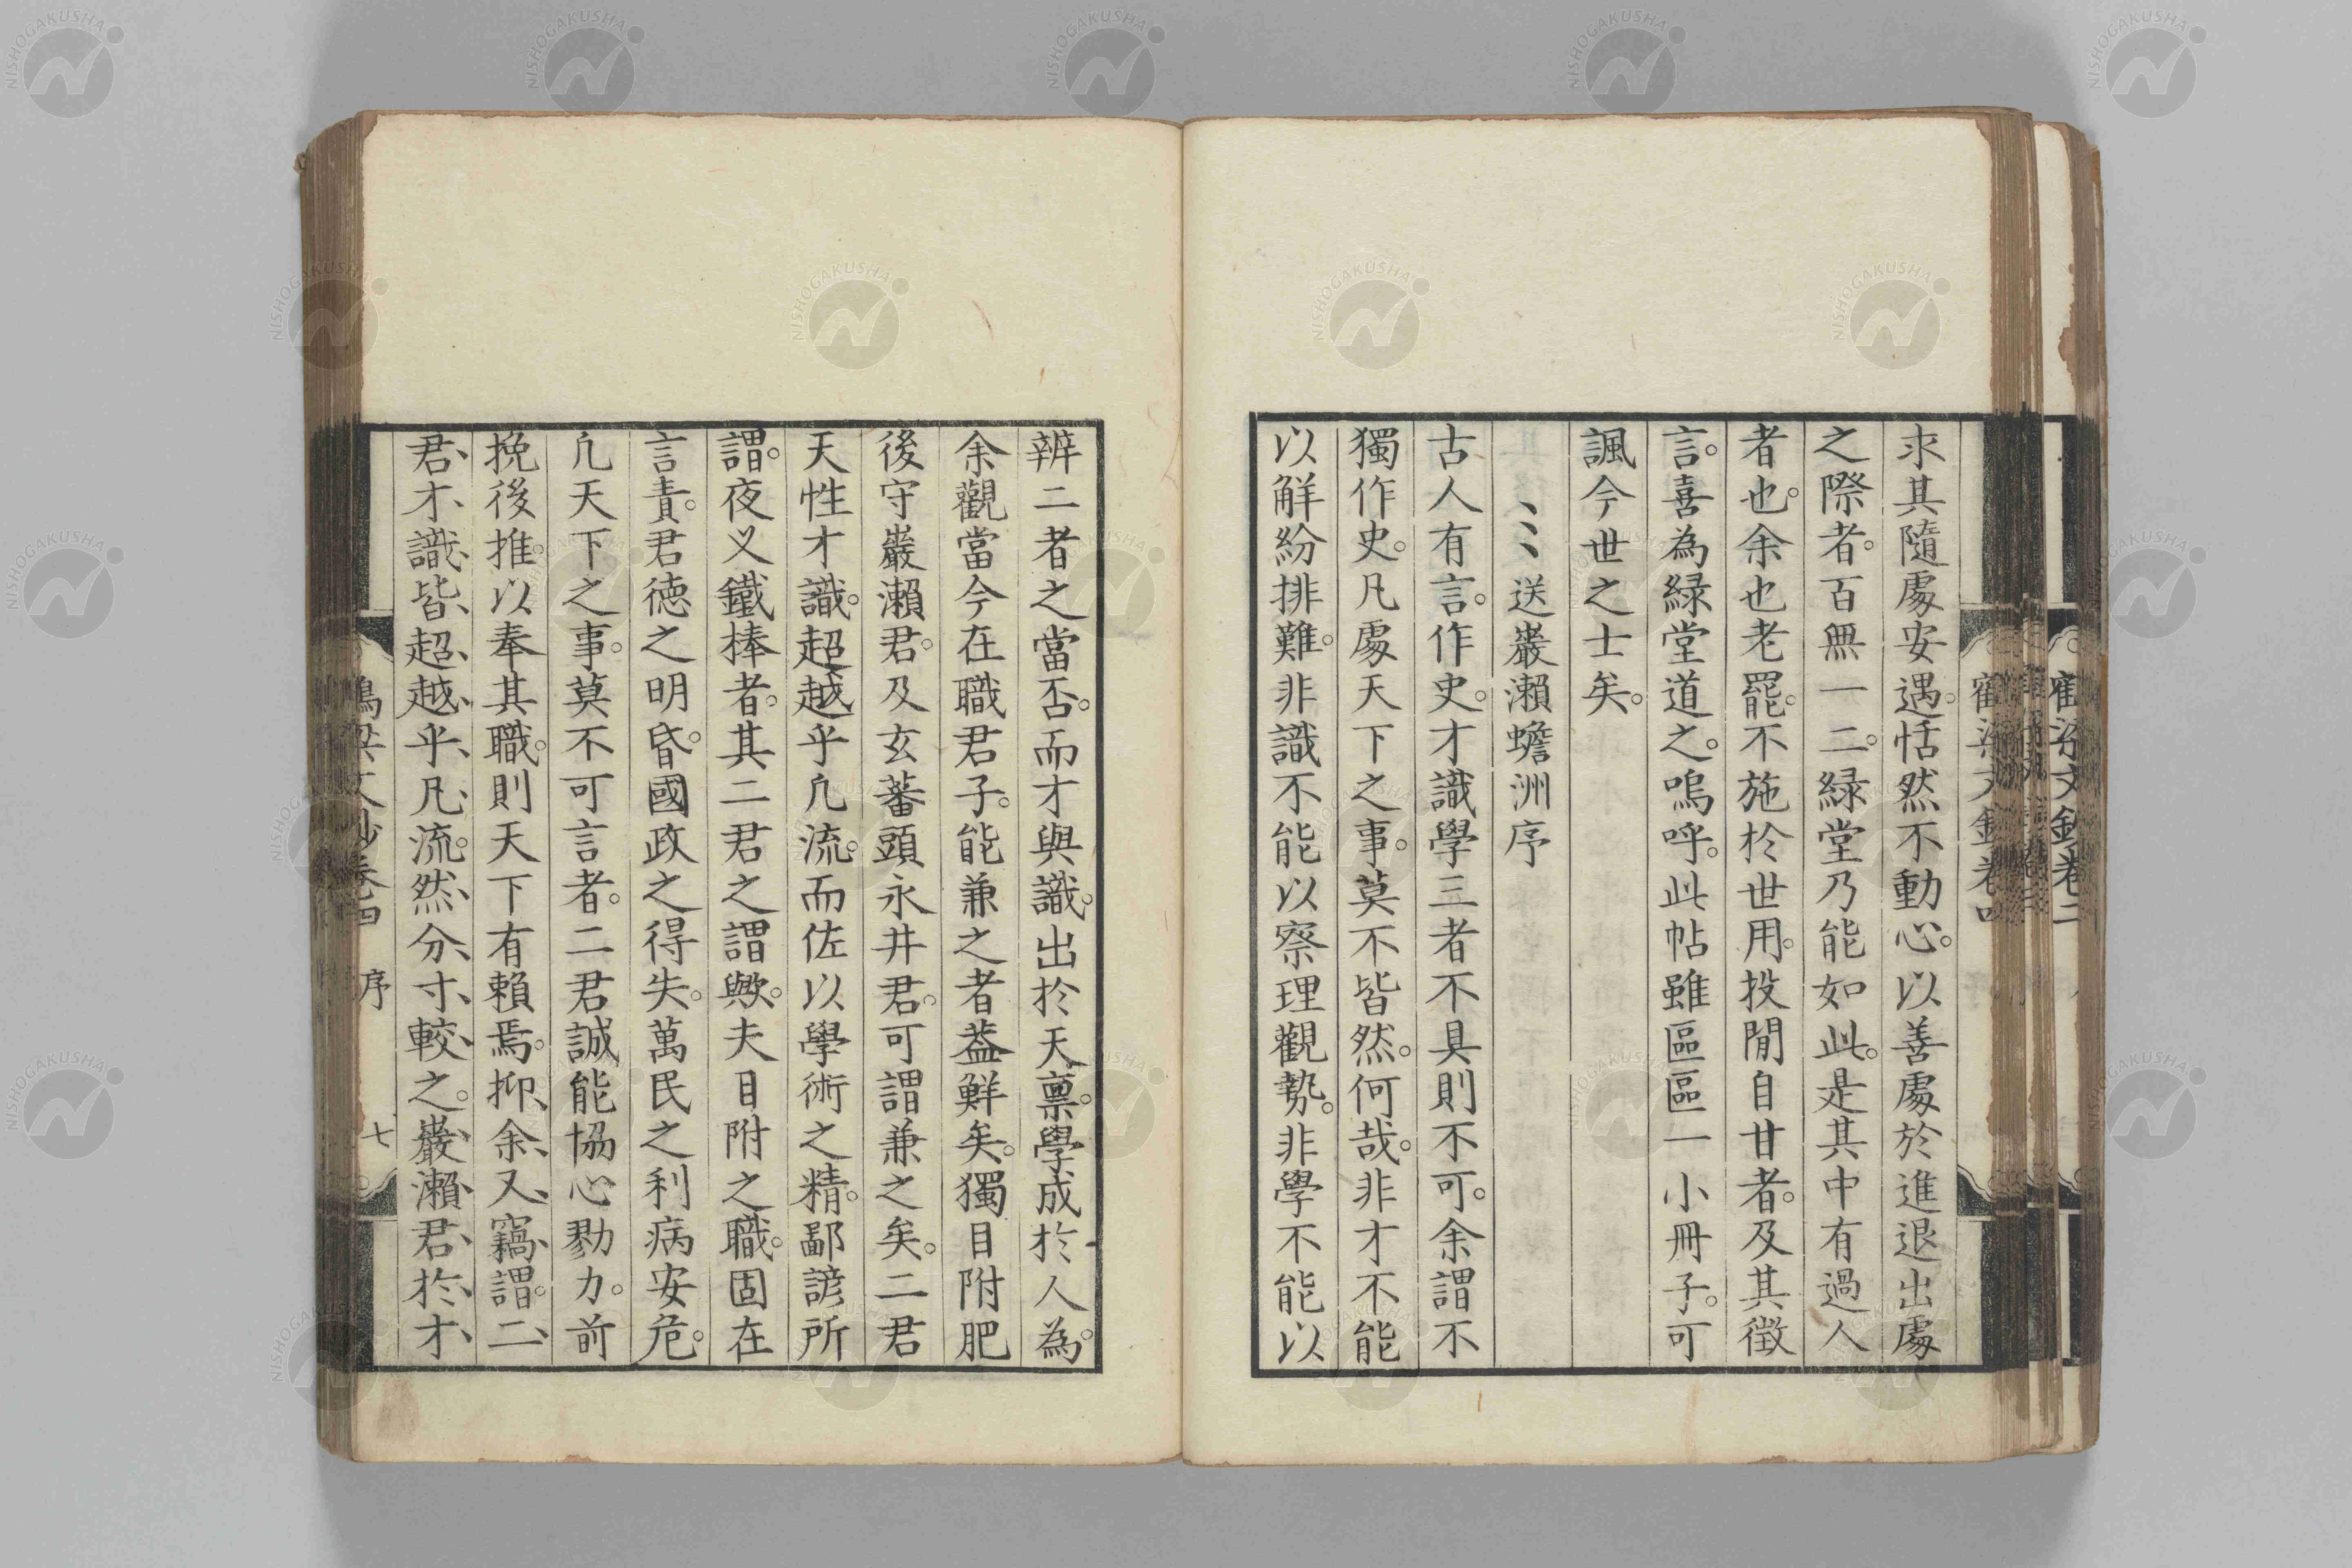 求其隨處安遇。恬然不動心。以善處於進退出處
之際者。百無一二。緑堂乃能如此。是其中有過人
者也。余也老罷。不施於世用。投閒自甘者。及其徴
言。喜為緑堂道之。嗚呼。此帖雖區區一小冊子。可
諷今世之士矣。
送巖瀨蟾洲序
古人有言。作史。才識學三者不具則不可。余謂不
獨作史。凡處天下之事。莫不皆然。何哉。非才不能
以解紛排難。非識不能以察理觀勢。非學不能以
辨二者之當否。而才與識。出於天稟。學成於人為。
余觀當今在職君子。能兼之者葢鮮矣。獨目附肥
後守巖瀨君。及玄蕃頭永井君。可謂兼之矣。二君
天性才識。超越乎凡流。而佐以學術之精。鄙諺所
謂。夜叉鐵棒者。其二君之謂歟。夫目附之職。固在
言責。君德之明昏。國政之得失。萬民之利病安危。
凡天下之事。莫不可言者。二君誠能協心勠力。前
挽後推。以奉其職。則天下有賴焉。抑余又竊謂。二
君才識皆超越乎凡流。然分寸較之。巖瀨君於才
序
七
NISHOGAKUSHA